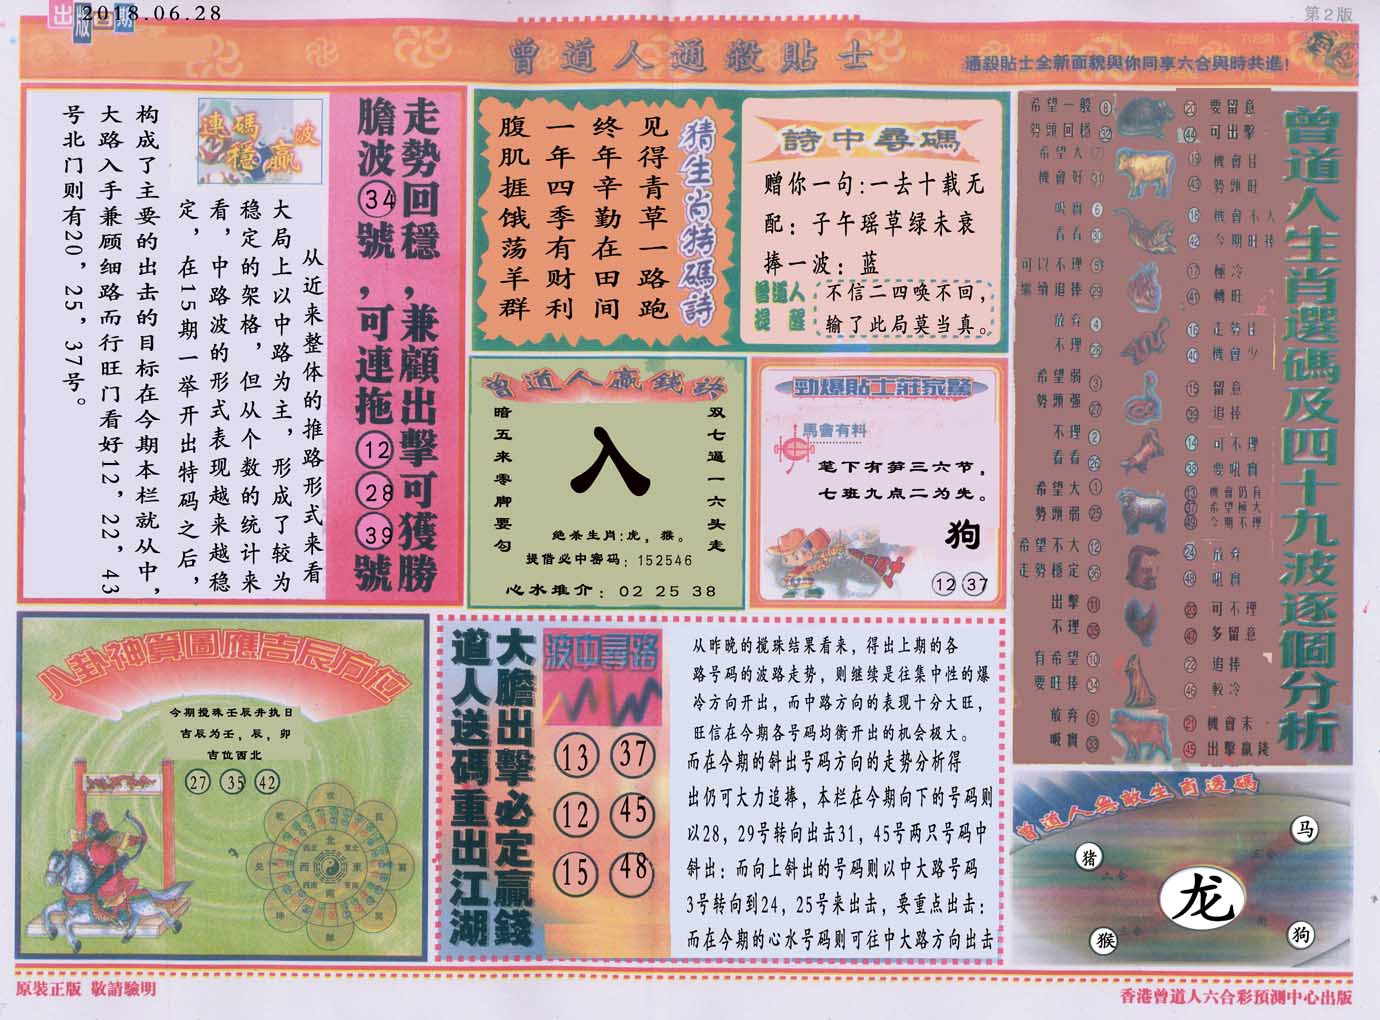 出版日期
2018.06.28
第2版
曾道人通殺貼士
通殺貼士全新面貌與你同享六合與時共進!
走勢回穩,兼顧出擊可獲勝
膽波34號,可連拖12 28 39號
連碼波
穩贏
从近来整体的推路形式来看
大局上以中路为主,形成了较为
稳定的架格,但从个数的统计来
看,中路波的形式表现越来越稳
定,在15期一举开出特码之后,
构成了主要的出击的目标在今期本栏就从中,
大路入手兼顾细路而行旺门看好12,22,43
号北门则有20,25,37号。
猜生肖特碼詩
见得青草一路跑
终年辛勤在田间
一年四季有财利
腹肌捱饿荡羊群
詩中尋碼
赠你一句:一去十载无
配:子午瑶草绿未衰
捧一波:蓝
曾道人
提醒
不信二四唤不回,
输了此局莫当真。
曾道人贏錢訣
双七逼一六头走
暗五来零脚要勾
入
绝杀生肖:虎,猴。
提借必中密码:152546
心水推介:02 25 38
勁爆貼士莊家驚
馬會有料
笔下有笋三六节,
七班九点二为先。
狗
12 37
曾道人生肖選碼及四十九波逐個分析
希望一般 8
勢頭回穩 32
20 要留意
44 可出擊
希望大 7
機會好 31
19 機會佳
43 勢頭旺
吸實 6
看看 30
18 機會不大
42 今期旺捧
可以不理 5
繼續追捧 29
17 極冷
41 轉旺
放弃 4
不理 28
16 走勢佳
40 機會少
希望弱 3
勢頭强 27
15 留意
39 追捧
不理 2
看看 26
14 可不理
38 要吼實
希望大 1
勢頭弱 25
13 機會仍有
37 希望極大
49 今期不理
希望不大 12
走勢穩定 36
24 放弃
48 吼實
出擊 11
不理 35
23 可不理
47 多留意
有希望 10
要旺捧 34
22 追捧
46 較冷
放弃 9
吸實 33
21 機會未
45 出擊贏錢
八卦神算圖應吉辰方位
今期搅珠壬辰井执日
吉辰为壬,辰,卯
吉位西北
27 35 42
大膽出擊必定贏錢
道人送碼重出江湖
波中尋路
13 37
12 45
15 48
从昨晚的搅珠结果看来,得出上期的各
路号码的波路走势,则继续是往集中性的爆
冷方向开出,而中路方向的表现十分大旺,
旺信在今期各号码均衡开出的机会极大。
而在今期的斜出号码方向的走势分析得
出仍可大力追捧,本栏在今期向下的号码则
以28,29号转向出击31,45号两只号码中
斜出:而向上斜出的号码则以中大路号码
3号转向到24,25号来出击,要重点出击:
而在今期的心水号码则可往中大路方向出击
曾道人無敵生肖透碼
猪
马
龙
猴
狗
原裝正版 敬請驗明
香港曾道人六合彩預測中心出版